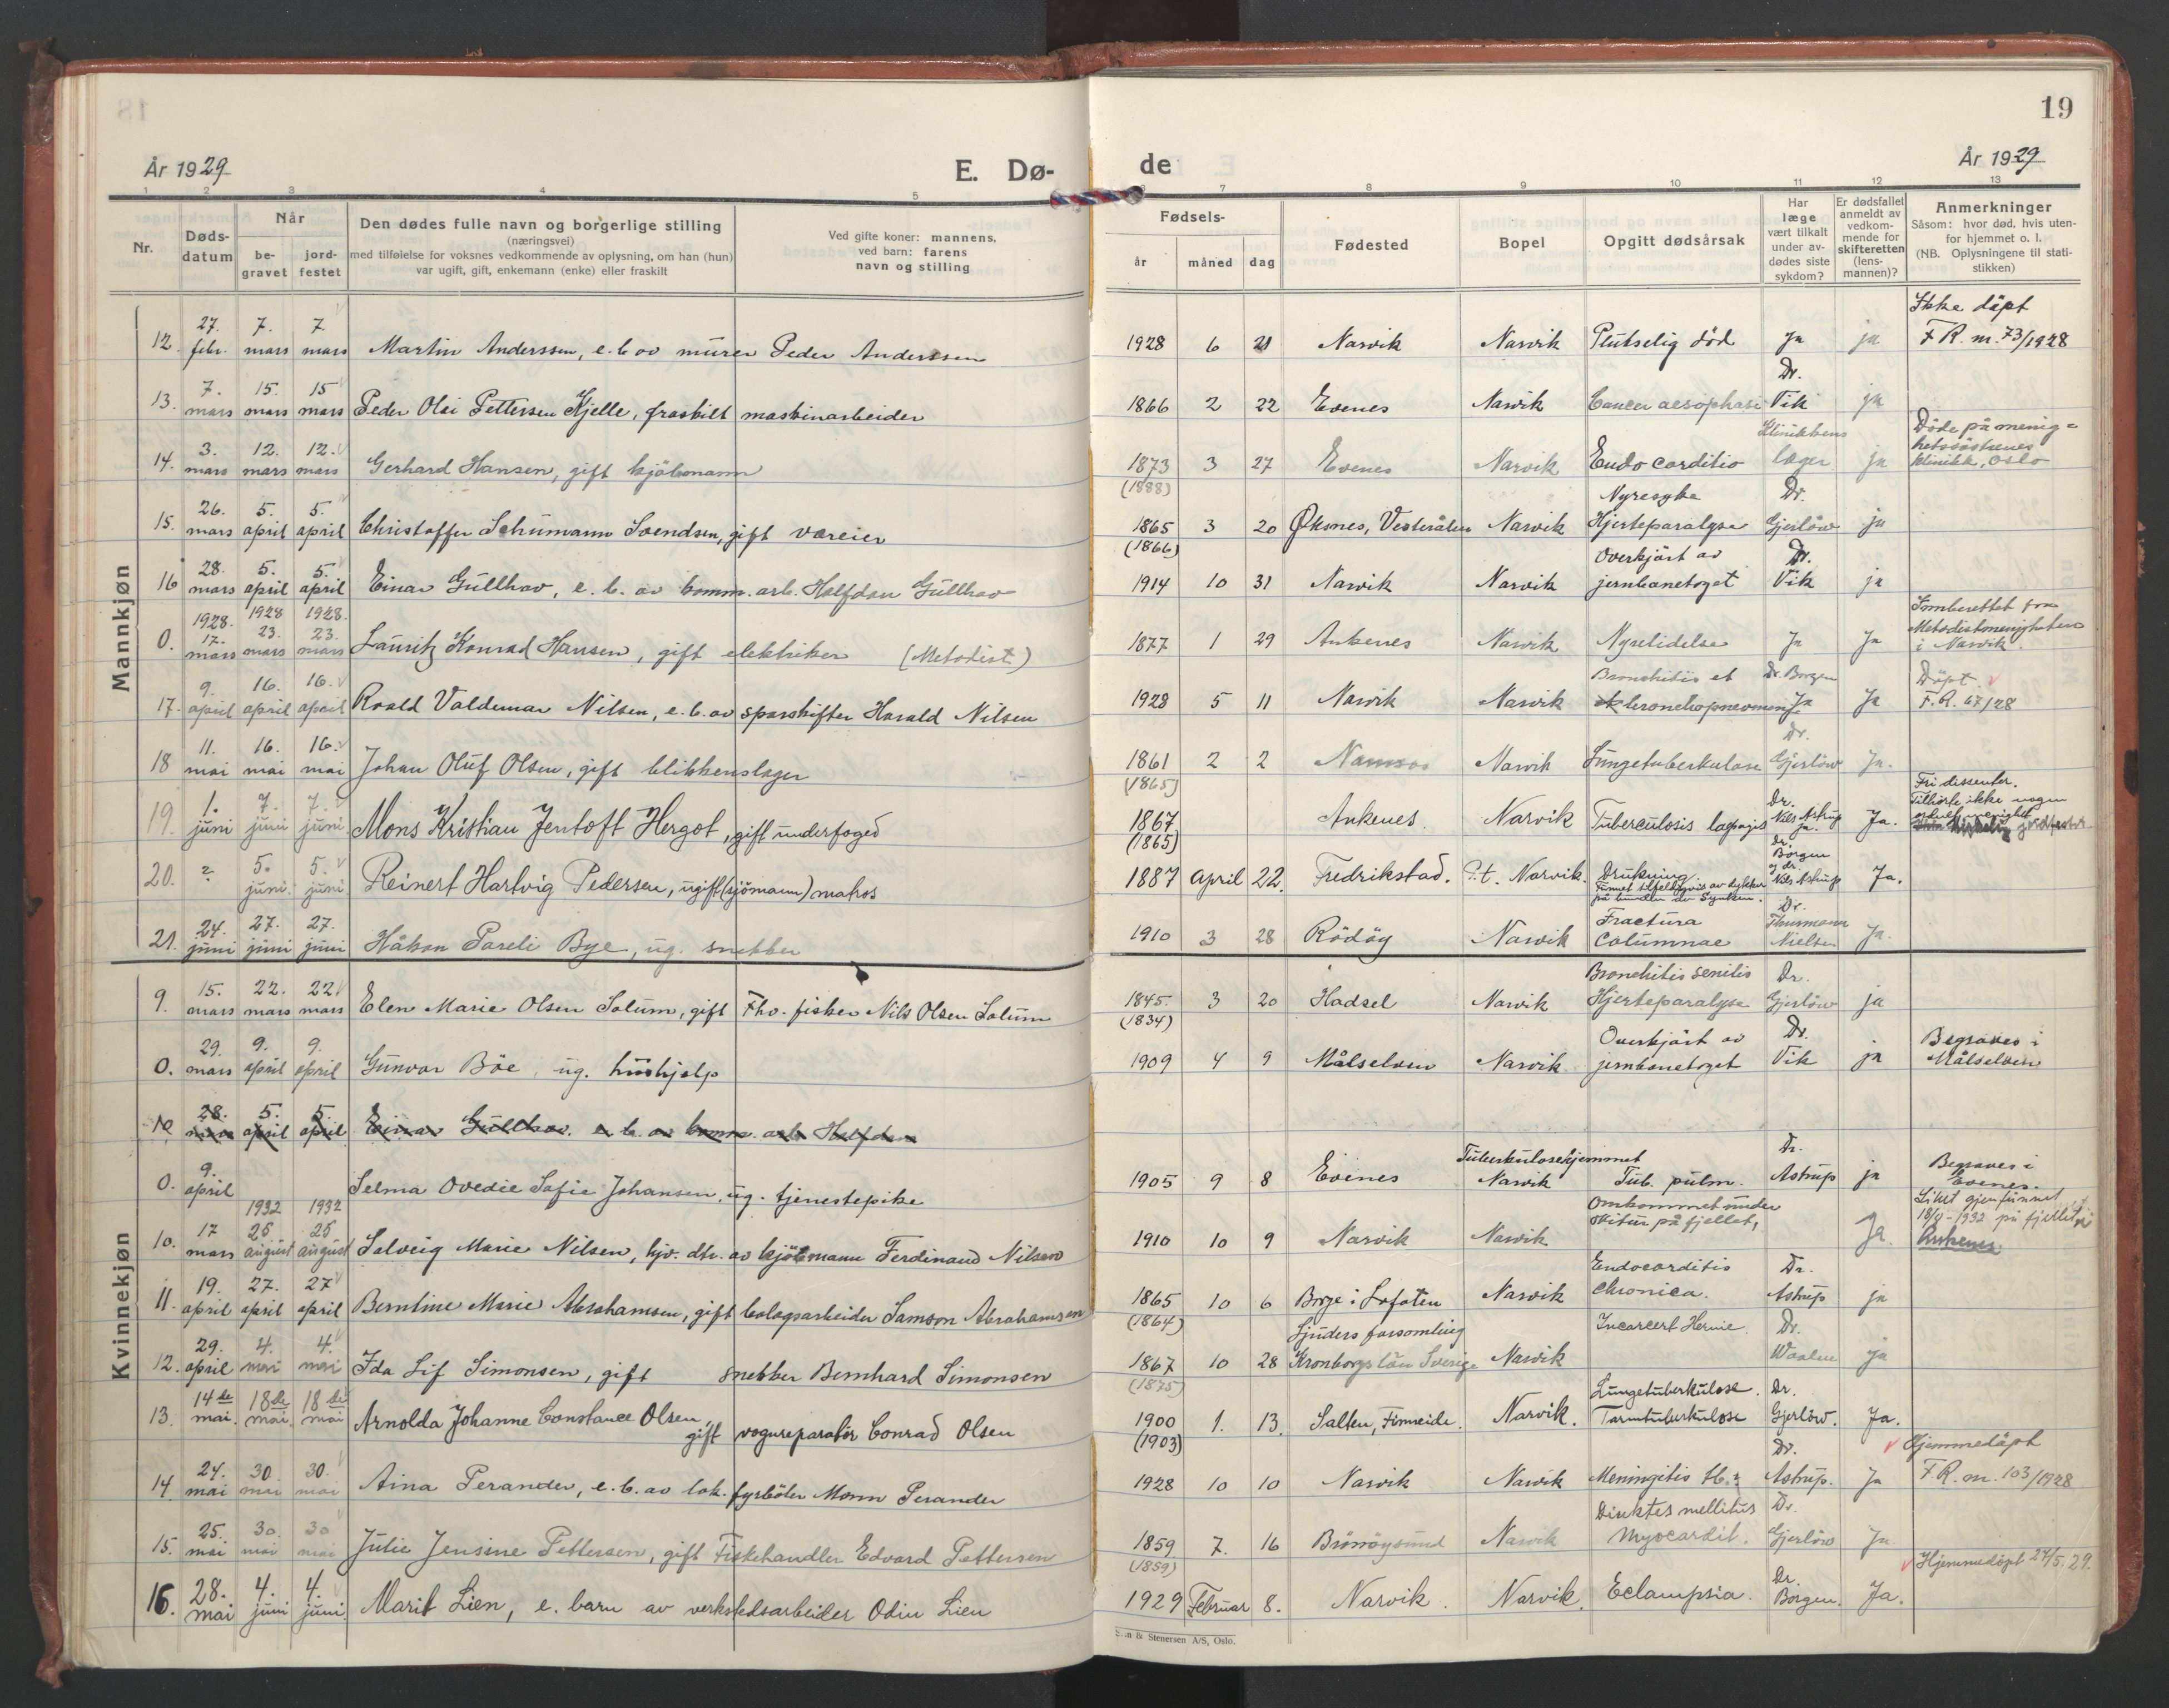 19
År 1929
E. Dø-
de
År 1929
1 2 3 4 5 6 7 8 9 10 11 12 13
Nr.
Døds-
datum
Når
be-
gravet
jord-
festet
Den dødes fulle navn og borgerlige stilling
(næringsvei)
med tilføielse for voksnes vedkommende av oplysning, om han (hun)
var ugift, gift, enkemann (enke) eller fraskilt
Ved gifte koner: mannens,
ved barn: farens
navn og stilling
Fødsels-
år måned dag
Fødested
Bopel
Opgitt dødsårsak
Har
læge
vært tilkalt
under av-
dødes siste
sykdom?
Er dødsfallet
anmeldt av
vedkom-
mende for
skifteretten
(lens-
mannen)?
Anmerkninger
Såsom: hvor død, hvis uten-
for hjemmet o. l.
(NB. Oplysningene til stati-
stikken)
Mannkjøn
12. 27. febr. 7. mars 7. mars Martin Anderssen, e. b. av murer Peder Anderssen 1928 6 21 Narvik Narvik Plutselig död Ja ja Ikke döpt
F R. nr. 73/1928
13. 7. mars 15. mars 15 mars Peder Olai Pettersen Kjelle, fraskilt maskinarbeider 1866 2 22 Evenes Narvik Cancer aesophasi Dr. Vik ja
14. 3. mars 12. mars 12. mars Gerhard Hansen, gift kjöbmann 1873 (1888) 3 27 Evenes Narvik Endocarditis Klinikkens læger ja Döde på menig=
hetssöstrenes
klinikk, Oslo
15. 26. mars 5. april 5. april Christoffer Schumann Svendsen, gift væreier 1865 (1866) 3 20 Öksnes, Vesterålen Narvik Nyresyke
Hjerteparalyse Dr. Gjerlöw ja
16 28. mars 5. april 5. april Einar Gullhav, e. b. av komm. arb. Halfdan Gullhav 1914 10 31 Narvik Narvik Overkjört av
jernbanetoget Dr. Vik ja
0. 1928. 17. mars 1928 23. mars 1928. 23. mars Lauritz Konrad Hansen, gift elektriker (Metodist) 1877 1 29 Ankenes Narvik Nyrelidelse Ja Ja Innberettet fra
Metodistmenigheten
i Narvik.
17. 9. april 16. april 16. april Roald Valdemar Nilsen, e. b. av sporskifter Harald Nilsen 1928 5 11 Narvik Narvik Bronchitis et
bronchopneumoni Dr. Borgen Ja Ja Döpt.
F. R. 67/28
18 11. mai 16. mai 16. mai Johan Oluf Olsen, gift blikkenslager 1861 (1865) 2 2 Namsos Narvik Lungetuberkulose Dr. Gjerlöw Ja.
19. 1. juni 7. juni 7. juni Mons Kristian Jentoft Hergot, gift underfoged 1867 (1865) Ankenes Narvik Tuberculosis Dr. Nils Astrup ja. Ja. Fri dissenter.
Tilhörte ikke nogen
20. ? 5. juni. 5. juni. Reinert Hartvig Pedersen, ugift (sjömann) matros 1887 April 22. Fredrikstad. P.t. Narvik. Drukning.
Funnet tilfeldigvis av dykker
på bunden av Dr. Borgen og dr. Nils Astrup Ja.
21. 24. juni 27. juni 27. juni Håkon Pareli Bye, ug. snekker 1910 3 28 Rödöy Narvik Fractura
Columnae Dr. Thurmann Nielsen Ja.
Kvinnekjøn
9. 15. mars 22. mars 22 mars Elen Marie Olsen Solum, gift Fhv. fisker Nils Olsen Solum 1845. (1834) 3 20 Hadsel Narvik Bronchitis senilis
Hjerteparalyse Dr. Gjerlöw ja
0. 29. mars 9. april 9. april Gunvor Böe, ug. hushjelp 1909 4 9 Målselven Narvik Overkjört av
jernbanetoget Dr. Vik ja Begraves i
Målselven
10 28. mars 5. april 5 april Einar Gullhav. e. b. av komm. arb. Halfdan
0. 9. april Selma Ovedie Sofie Johansen, ug. tjenestepike 1905 9 8 Evenes Tuberkulosehjemmet
Narvik Tub. pulm. Dr. Astrup ja Begraves i
Evenes.
10. 17 mars 1932 26 august 1932 26 august Solveig Marie Nilsen, hjv. dtr. av kjöbmann Ferdinand Nilsen 1910 10 9 Narvik Narvik Omkommet under
skitur på fjellet, Ja. Liket gjenfunnet
18/8-1932 på fjellet i
Ankenes
11. 19. april 27. april 27 april Berntine Marie Abrahamsen, gift bolagsarbeider Samson Abrahamsen 1865 (1864) 10 6 Borge i Lofoten Narvik Endocarditis
Chronica. Dr. Astrup ja
12. 29. april 4. mai 4. mai Ida Lif Simonsen, gift snekker Bernhard Simonsen 1867 (1875) 10 28 Ljuders forsamling
Kronbergs län Sverige Narvik Incarcert Hernie. Dr. Waaler ja
13. 14de mai. 18de mai. 18de mai Arnolda Johanne Constance Olsen, gift vognreparatör Conrad Olsen 1900 (1903) 1. 13. Salten, Finneide. Narvik. Lungetuberkulose.
Tarmtuberkulose Dr. Gjerlöw. Ja.
14. 24. mai 30. mai 30. mai Aina Perander, e. b. av lok. fyrböter Monn Perander 1928 10 10 Narvik Narvik Meningitis tb. Dr. Astrup. Ja Hjemmedöpt
F R. nr. 103/1928
15. 25. mai 30. mai 30 mai Julie Jensine Pettersen, gift Fiskehandler Edvard Pettersen 1859 (1859) 7. 16 Brönnöysund Narvik mellitus
Myocardit. Dr. Gjerlöw Ja
16. 28. mai 4. juni 4. juni. Marit Lien, e. barn av verkstedsarbeider Odin Lien 1929 Februar 8. Narvik. Narvik. Eclampsia. Dr. Borgen. Ja. Hjemmedöpt 24/5. 29.
& Stenersen A/S, Oslo.